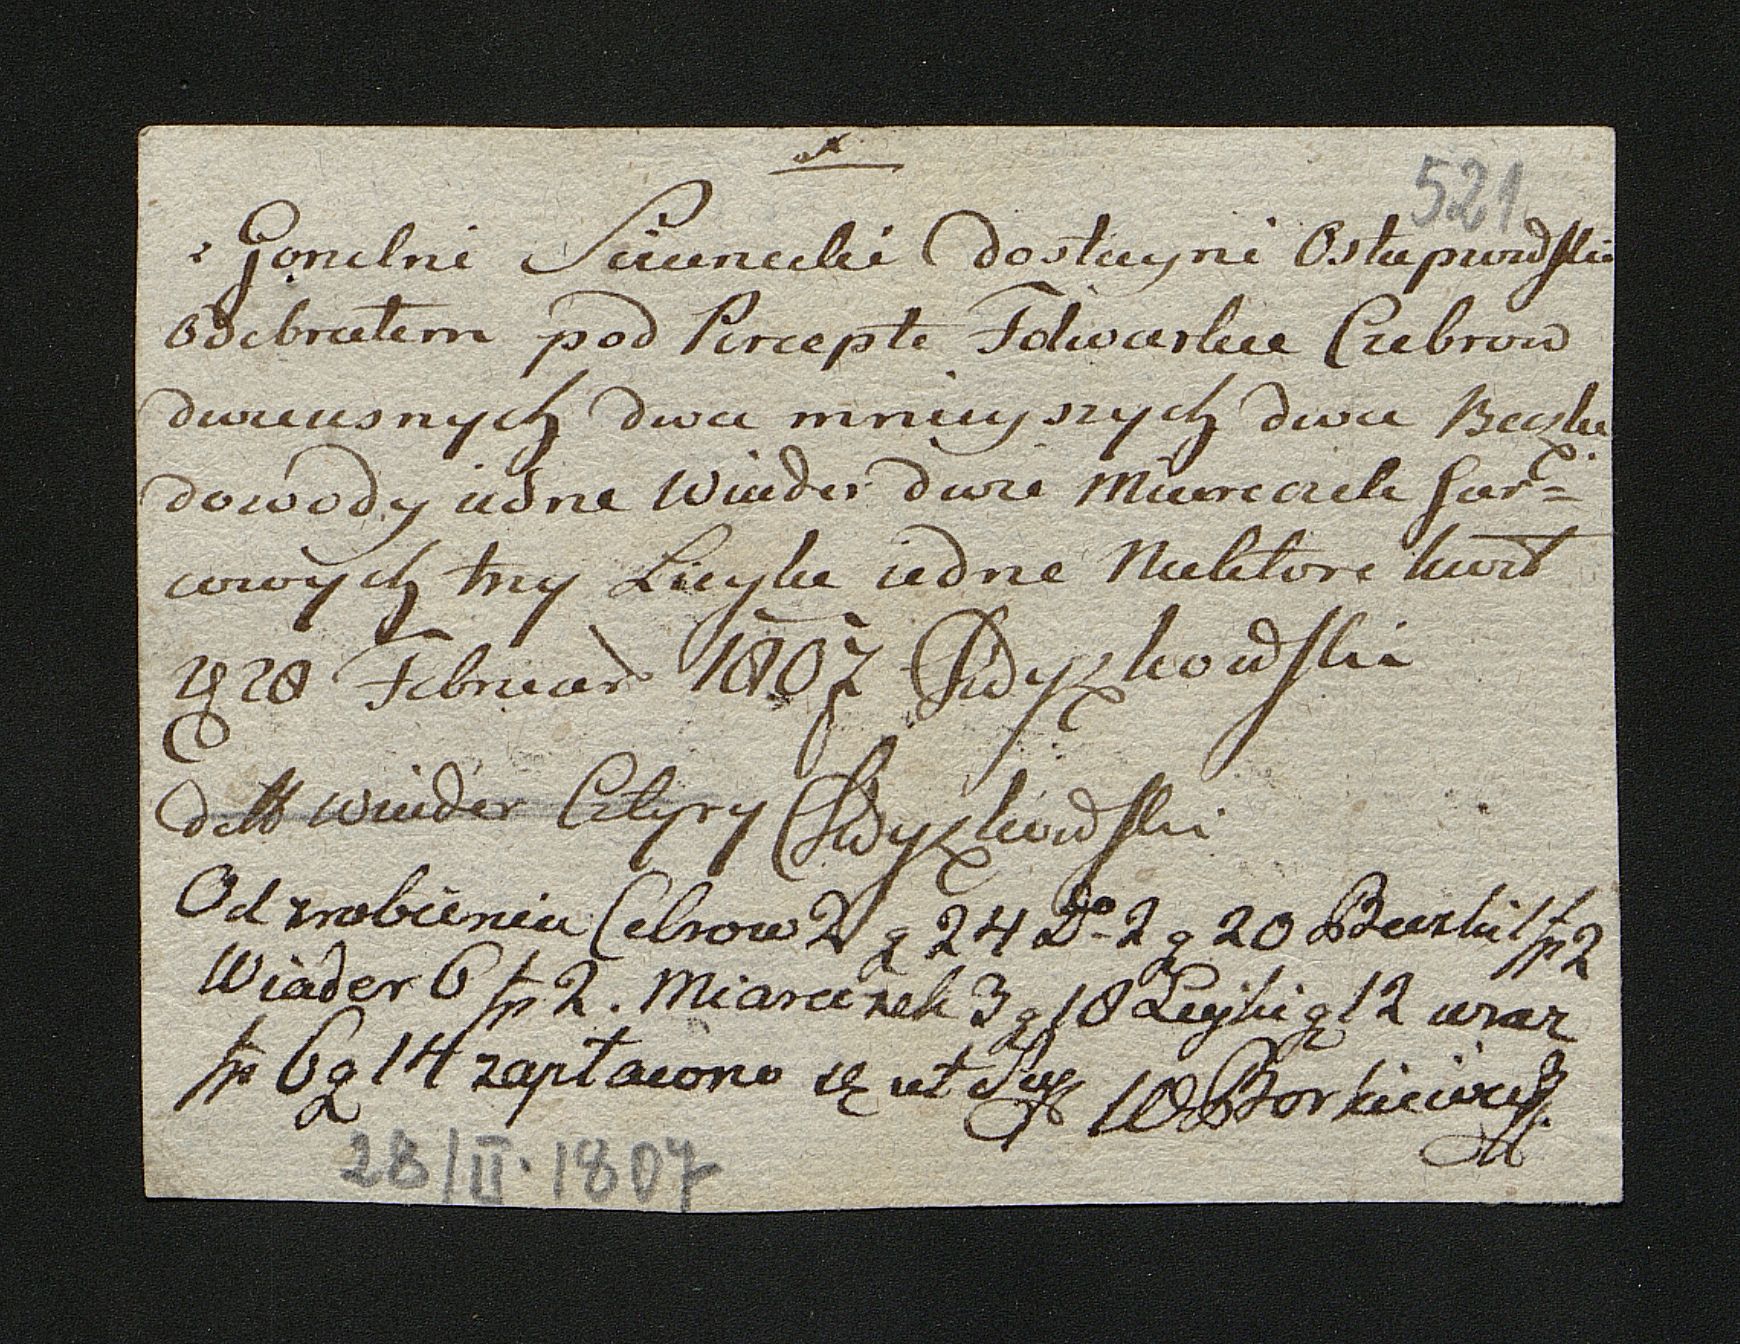 521.
z Gorzelni Sieneckiei dostaynei Ostapowskiei
Odebrałem pod Percepte Folwarku Cebrow
dwuusznych dwa mnieyszych dwa Beczke
do wody iedne Wiader dwie Miareczek Gar=
cowych trzy Leyke iedne Na ktore kwit
28 Februar 1807 Dyzkowski
detto Wiader Cztyry Dyzkowski
Od zrobienia Cebrow 2 g 24 Do 2 g 20 Beczki 1 fp 2
Wiader 6 fp 2. Miareczek 3 g 18 Leyki g 12 wraz
fp 6 g 14 zapłacono ut Sup Borkiewicz
28/II. 1807